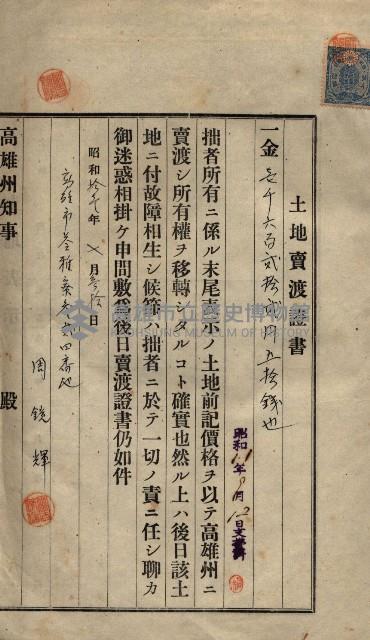 土地賣渡證書
一金壱千六百貳拾貳円五拾錢也
昭和11年9月12日
拙者所有ニ係ル末尾表示ノ土地前記價格ヲ以テ高雄州ニ
賣渡シ所有權ヲ移轉シタルコト確實也然ル上ハ後日該土
地ニ付故障相生シ候節ハ拙者ニ於テ一切ノ責ニ任シ聊カ
御迷惑相掛ケ申間敷爲後日賣渡證書仍如件
昭和拾壱年 七月參拾日
高雄市苓雅寮
周鏡輝
高雄州知事 殿
高雄市立歷史博物館
KAOHSIUNG MUSEUM OF HISTORY